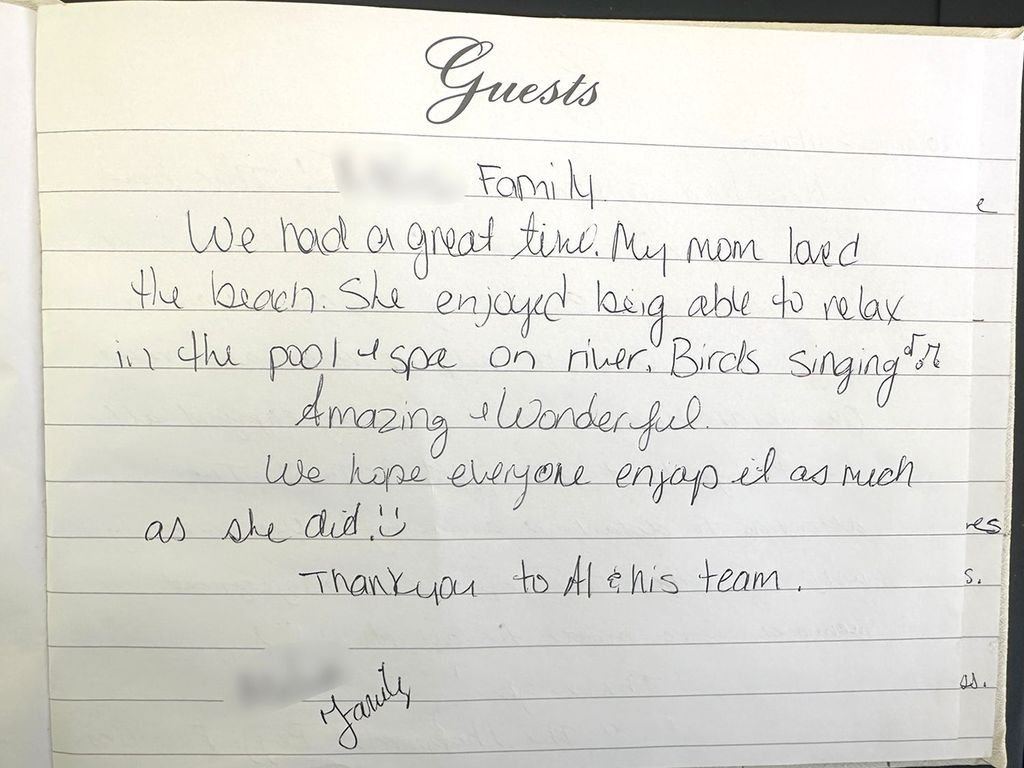 Guests
Family
We had a great time. My mom loved
the beach. She enjoyed being able to relax
in the pool & spa on river. Birds singing ♫♫
Amazing & Wonderful.
We hope everyone enjoys it as much
as she did. :)
Thankyou to Al & his team.
Family
e
res
s.
ss.